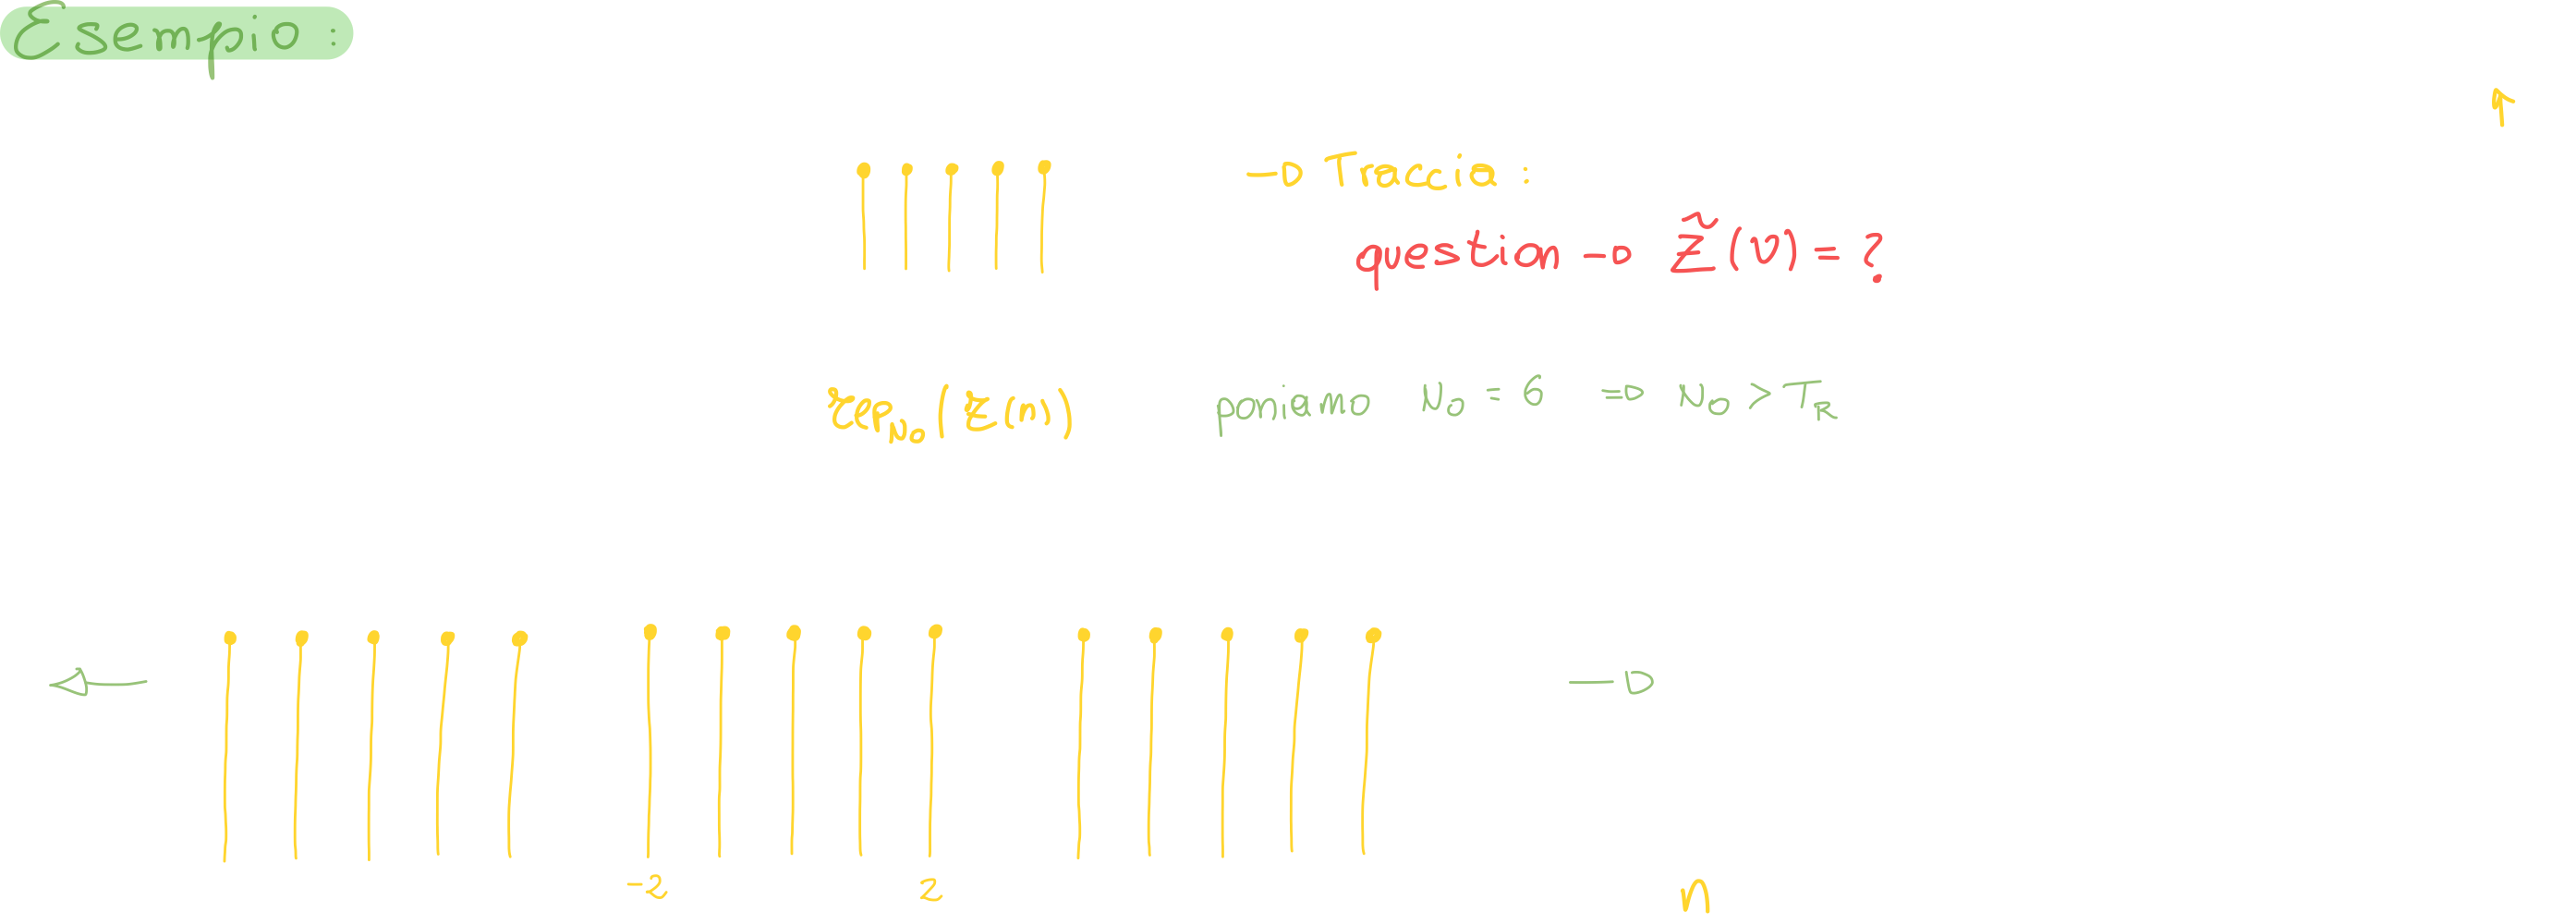 Esempio:
→ Traccia:
question → Z̃(ν) = ?
rep_N₀(z(n)) poniamo N₀ = 6 ⇒ N₀ > T_R
-2 2 n